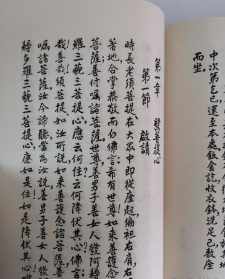 中次第乞已還至本處飯食訖收衣鉢洗足已敷座
而坐
第一章 發菩提心
第一節 啟請
時長老須菩提在大眾中即從座起偏袒右肩右
著地合掌恭敬而白佛言希有世尊如來善護念
菩薩善付囑諸菩薩世尊善男子善女人發阿耨
羅三藐三菩提心應云何住云何降伏其心佛言
哉善哉須菩提如汝所說如來善護念諸菩薩善
囑諸菩薩汝今諦聽當為汝說善男子善女人發
耨多羅三藐三菩提心應如是住如是降